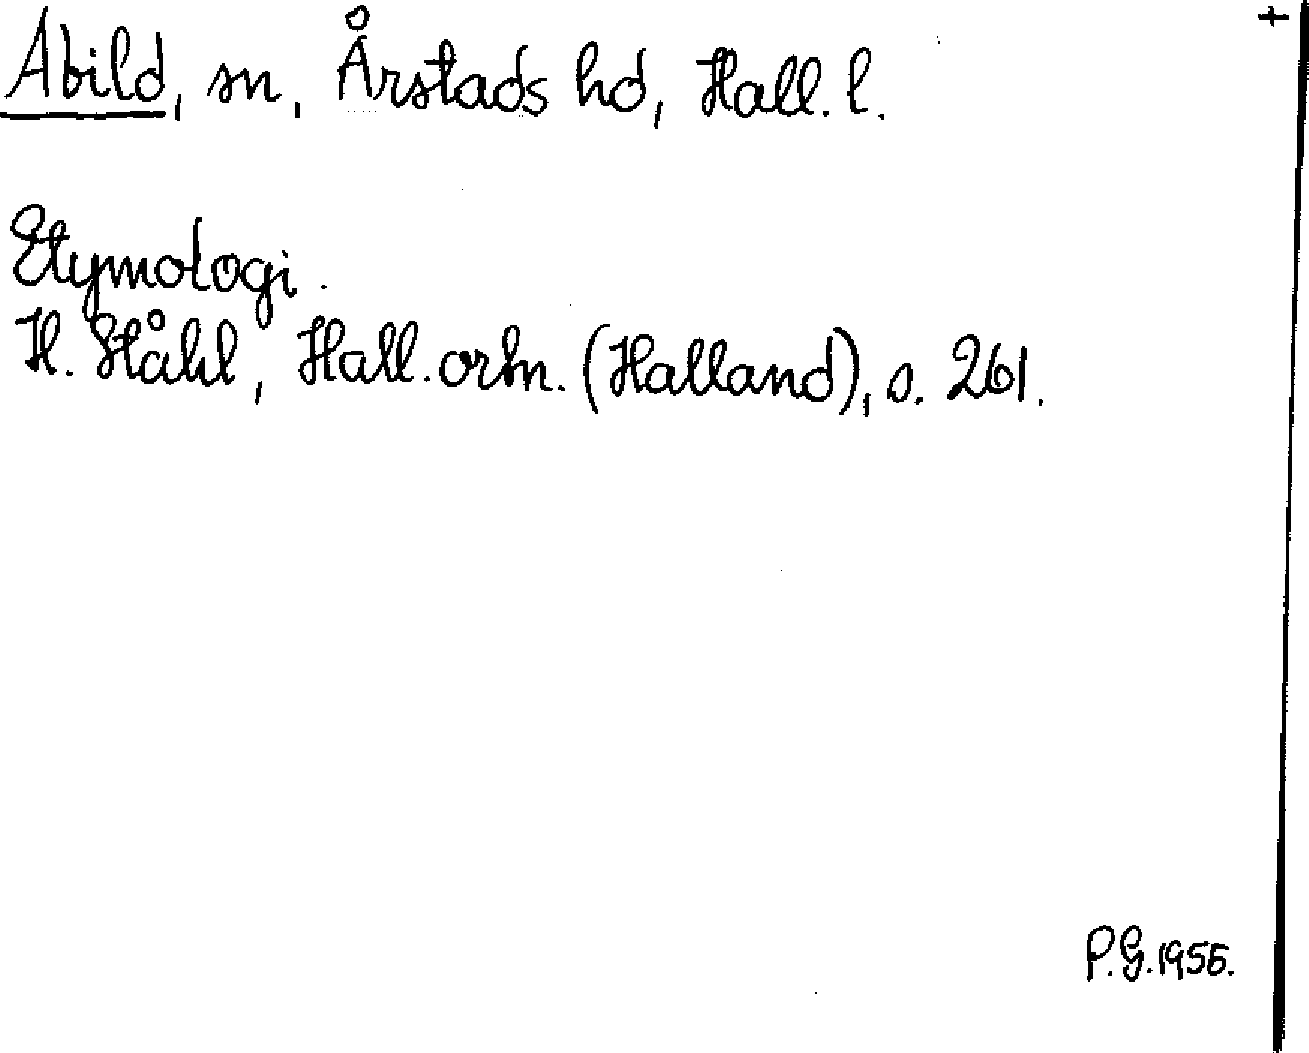 +
Abild, sn, Årstads hd, Hall. l.
Etymologi.
H. Ståhl, Hall. ortn. (Halland), s. 261.
P.G. 1955.